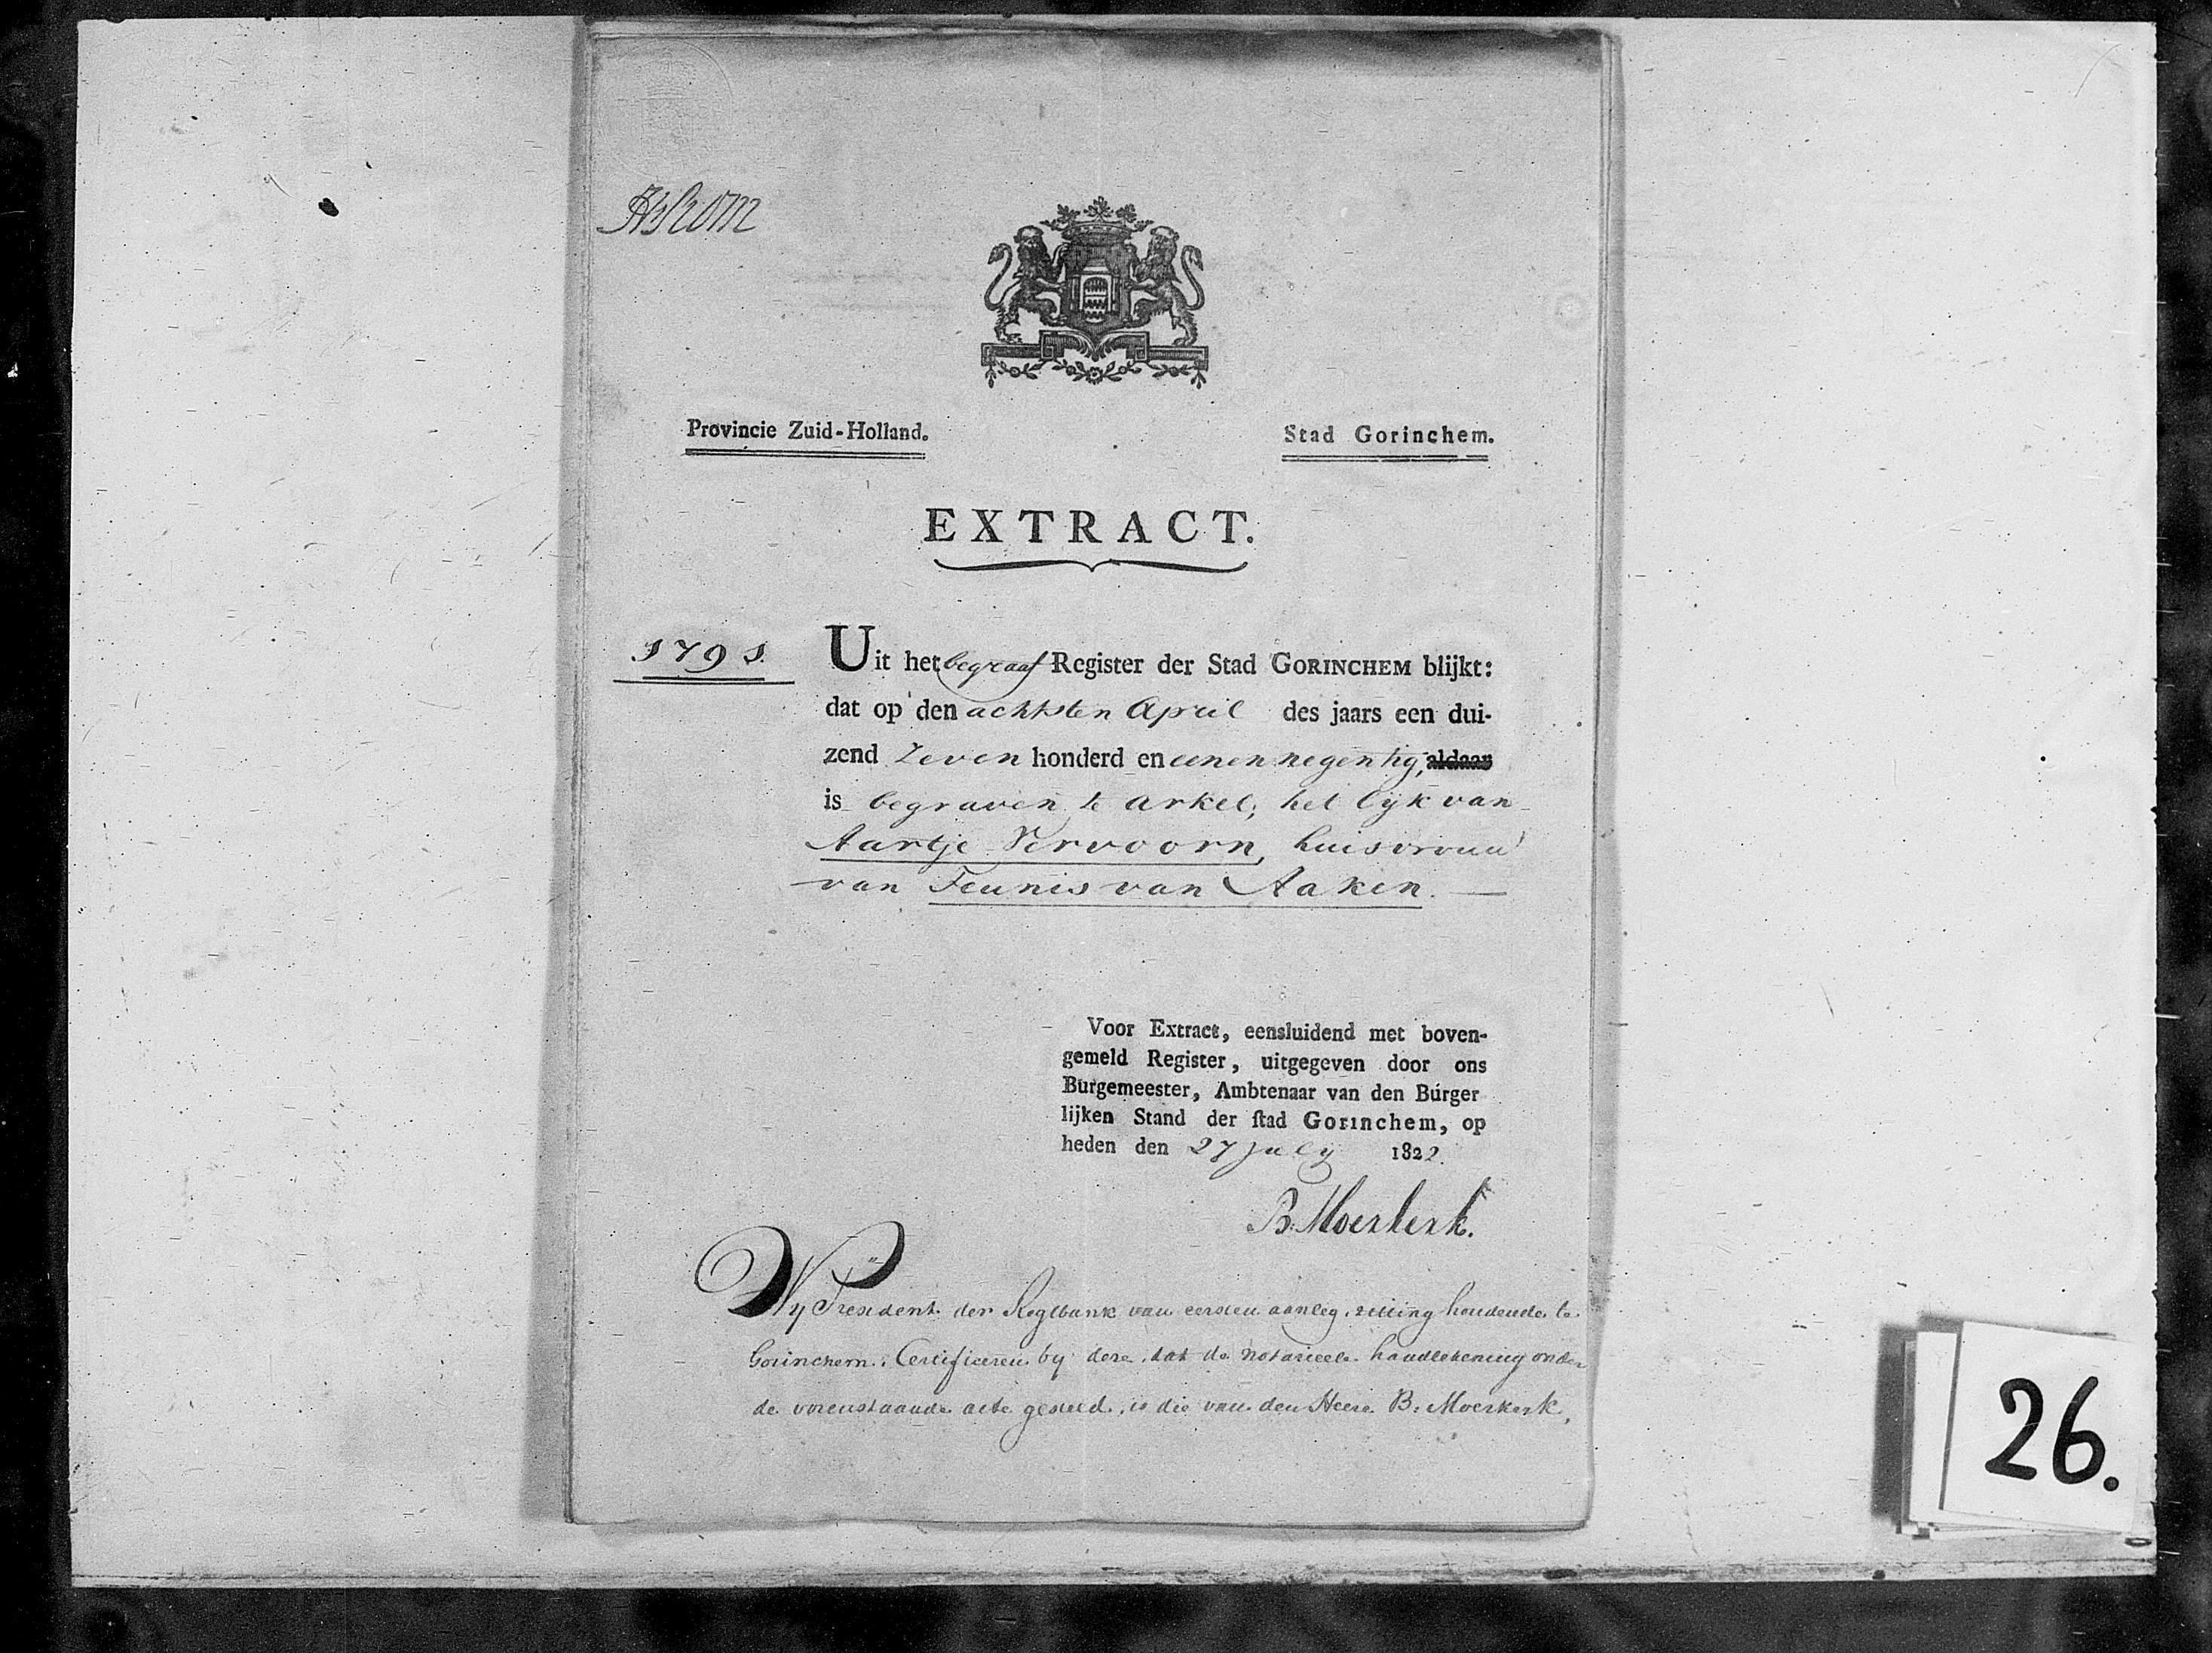 Provincie Zuid-Holland.
Stad Gorinchem.
EXTRACT.
1791.
Uit het begraaf Register der Stad GORINCHEM blijkt:
dat op den achtsten April des jaars een dui-
zend zeven honderd en eenen negentig, aldaar
is begraven te Arkel, het lijk van
Aartje Vervoorn, huisvrouw
van Teunis van Aaken.
Voor Extract, eensluidend met boven-
gemeld Register, uitgegeven door ons
Burgemeester, Ambtenaar van den Burger
lijken Stand der ſtad Gorinchem, op
heden den 27 July 1822.
B. Moerkerk.
Wy President der Regtbank van eersten aanleg, zitting houdende te
Gorinchem. Certificeren by deze, dat de notarieele handtekening onder
de vorenstaande acte gesteld, is die van den Heere B: Moerkerk,
26.